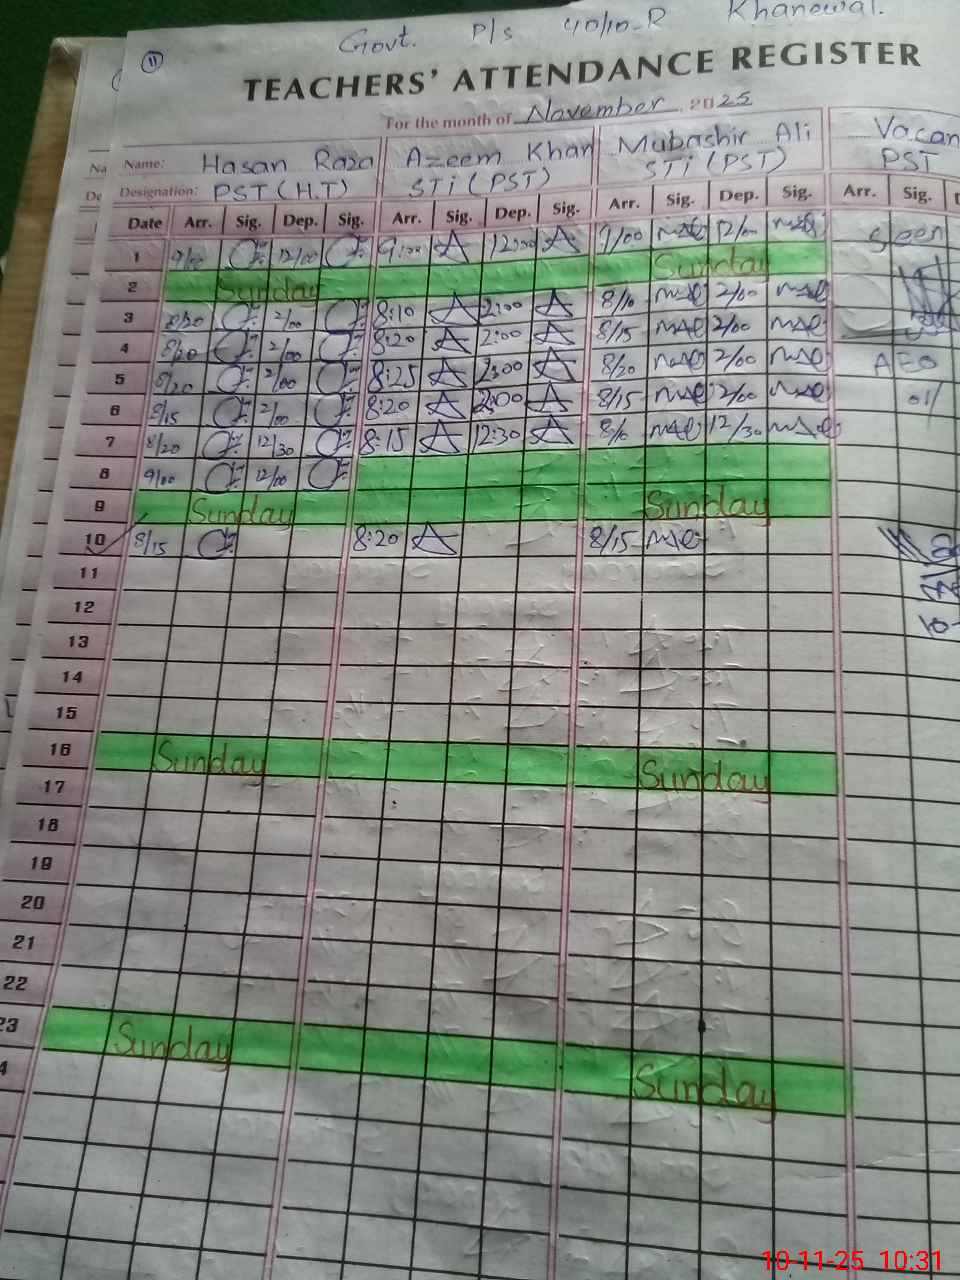 Govt. P/s 40/10-R Khanewal.
11
TEACHERS' ATTENDANCE REGISTER
For the month of November 2025
Name: Hasan Raza Azeem Khan Mubashir Ali Vacan
Designation: PST (H.T) STi (PST) STi (PST) PST
Date Arr. Sig. Dep. Sig. Arr. Sig. Dep. Sig. Arr. Sig. Dep. Sig. Arr. Sig. D
1 9/00 12/00 9:00 A 12:00 A 9/00 MAl 12/00 MAl Seen
2 Sunday Sunday
3 8/20 2/00 8:10 A 2:00 A 8/10 MAl 2/00 MAl
4 8/20 2/00 8:20 A 2:00 A 8/15 MAl 2/00 MAl
5 8/20 2/00 8:25 A 2:00 A 8/20 MAl 2/00 MAl AEO
6 8/15 2/00 8:20 A 2:00 A 8/15 MAl 2/00 MAl
7 8/20 12/30 8:15 A 12:30 A MAl 12/30 MAl
8 9/00 12/00
9 Sunday Sunday
10 8/15 8:20 A 8/15 MAl
11
12
13
14
15
16 Sunday Sunday
17
18
19
20
21
22
23 Sunday Sunday
4
10-11-25 10:31